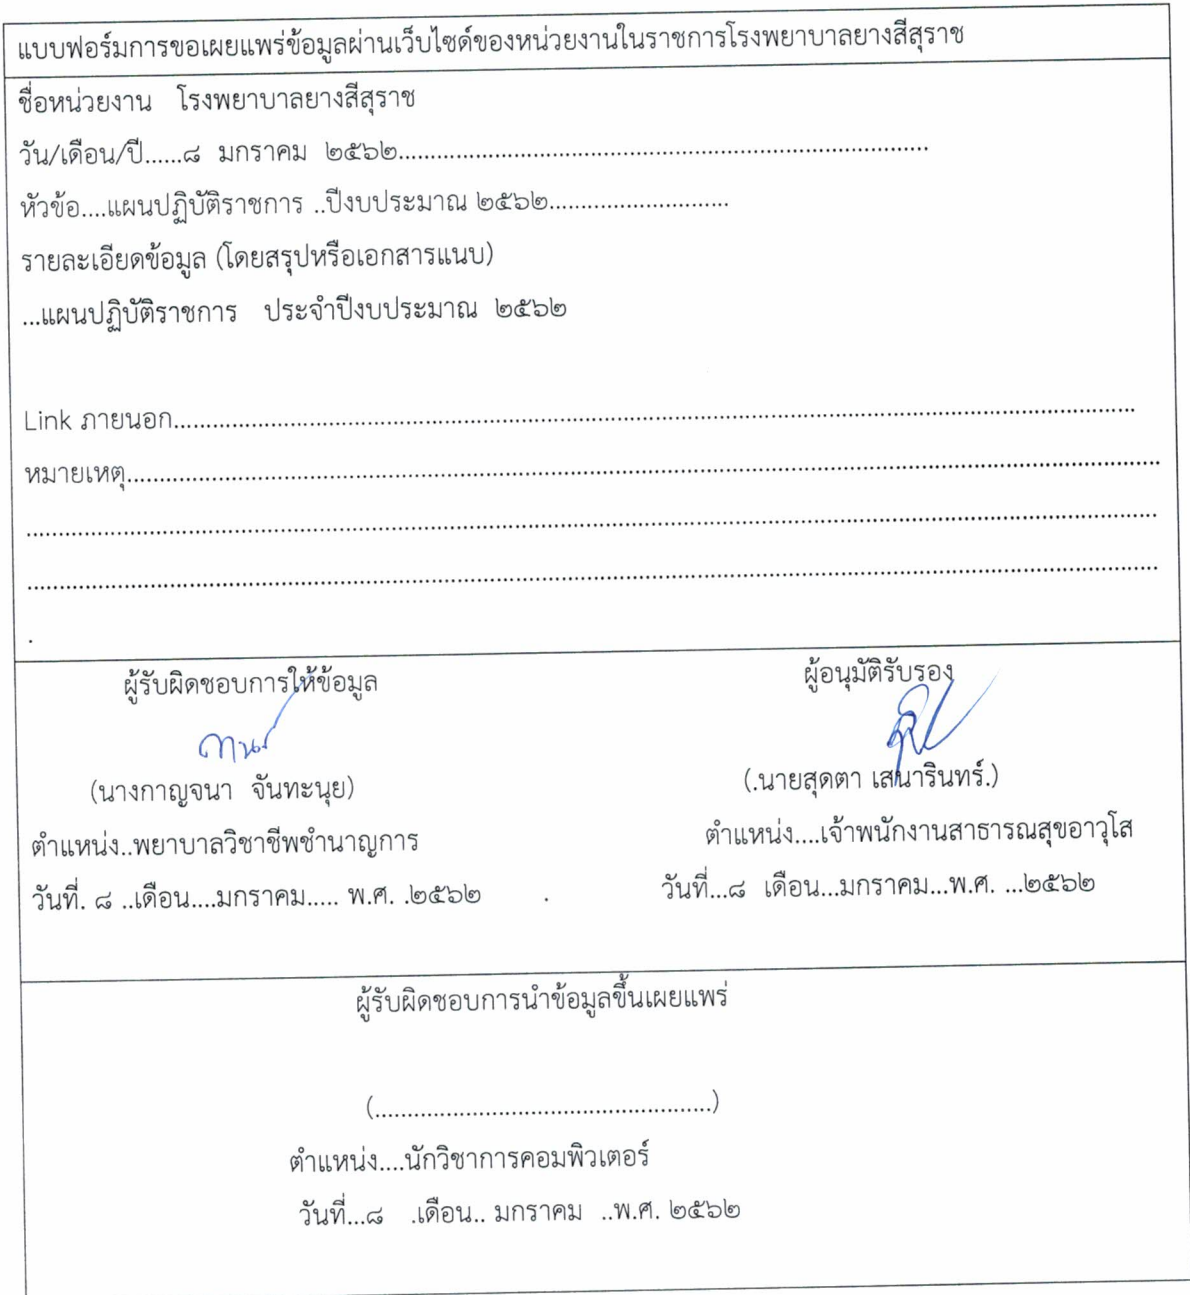 แบบฟอร์มการขอเผยแพร่ข้อมูลผ่านเว็บไซด์ของหน่วยงานในราชการโรงพยาบาลยางสีสุราช
ชื่อหน่วยงาน โรงพยาบาลยางสีสุราช
วัน/เดือน/ปี......๘ มกราคม ๒๕๖๒....................................................................................
หัวข้อ....แผนปฏิบัติราชการ ..ปีงบประมาณ ๒๕๖๒............................
รายละเอียดข้อมูล (โดยสรุปหรือเอกสารแนบ)
...แผนปฏิบัติราชการ ประจำปีงบประมาณ ๒๕๖๒
Link ภายนอก......................................................................................................................................................
หมายเหตุ..............................................................................................................................................................
..............................................................................................................................................................................
..............................................................................................................................................................................
.
ผู้รับผิดชอบการให้ข้อมูล ผู้อนุมัติรับรอง
(นางกาญจนา จันทะนุย) (.นายสุดตา เสนารินทร์.)
ตำแหน่ง..พยาบาลวิชาชีพชำนาญการ ตำแหน่ง....เจ้าพนักงานสาธารณสุขอาวุโส
วันที่. ๘ ..เดือน....มกราคม..... พ.ศ. .๒๕๖๒ . วันที่...๘ เดือน...มกราคม...พ.ศ. ...๒๕๖๒
ผู้รับผิดชอบการนำข้อมูลขึ้นเผยแพร่
(....................................................)
ตำแหน่ง....นักวิชาการคอมพิวเตอร์
วันที่...๘ .เดือน.. มกราคม ..พ.ศ. ๒๕๖๒